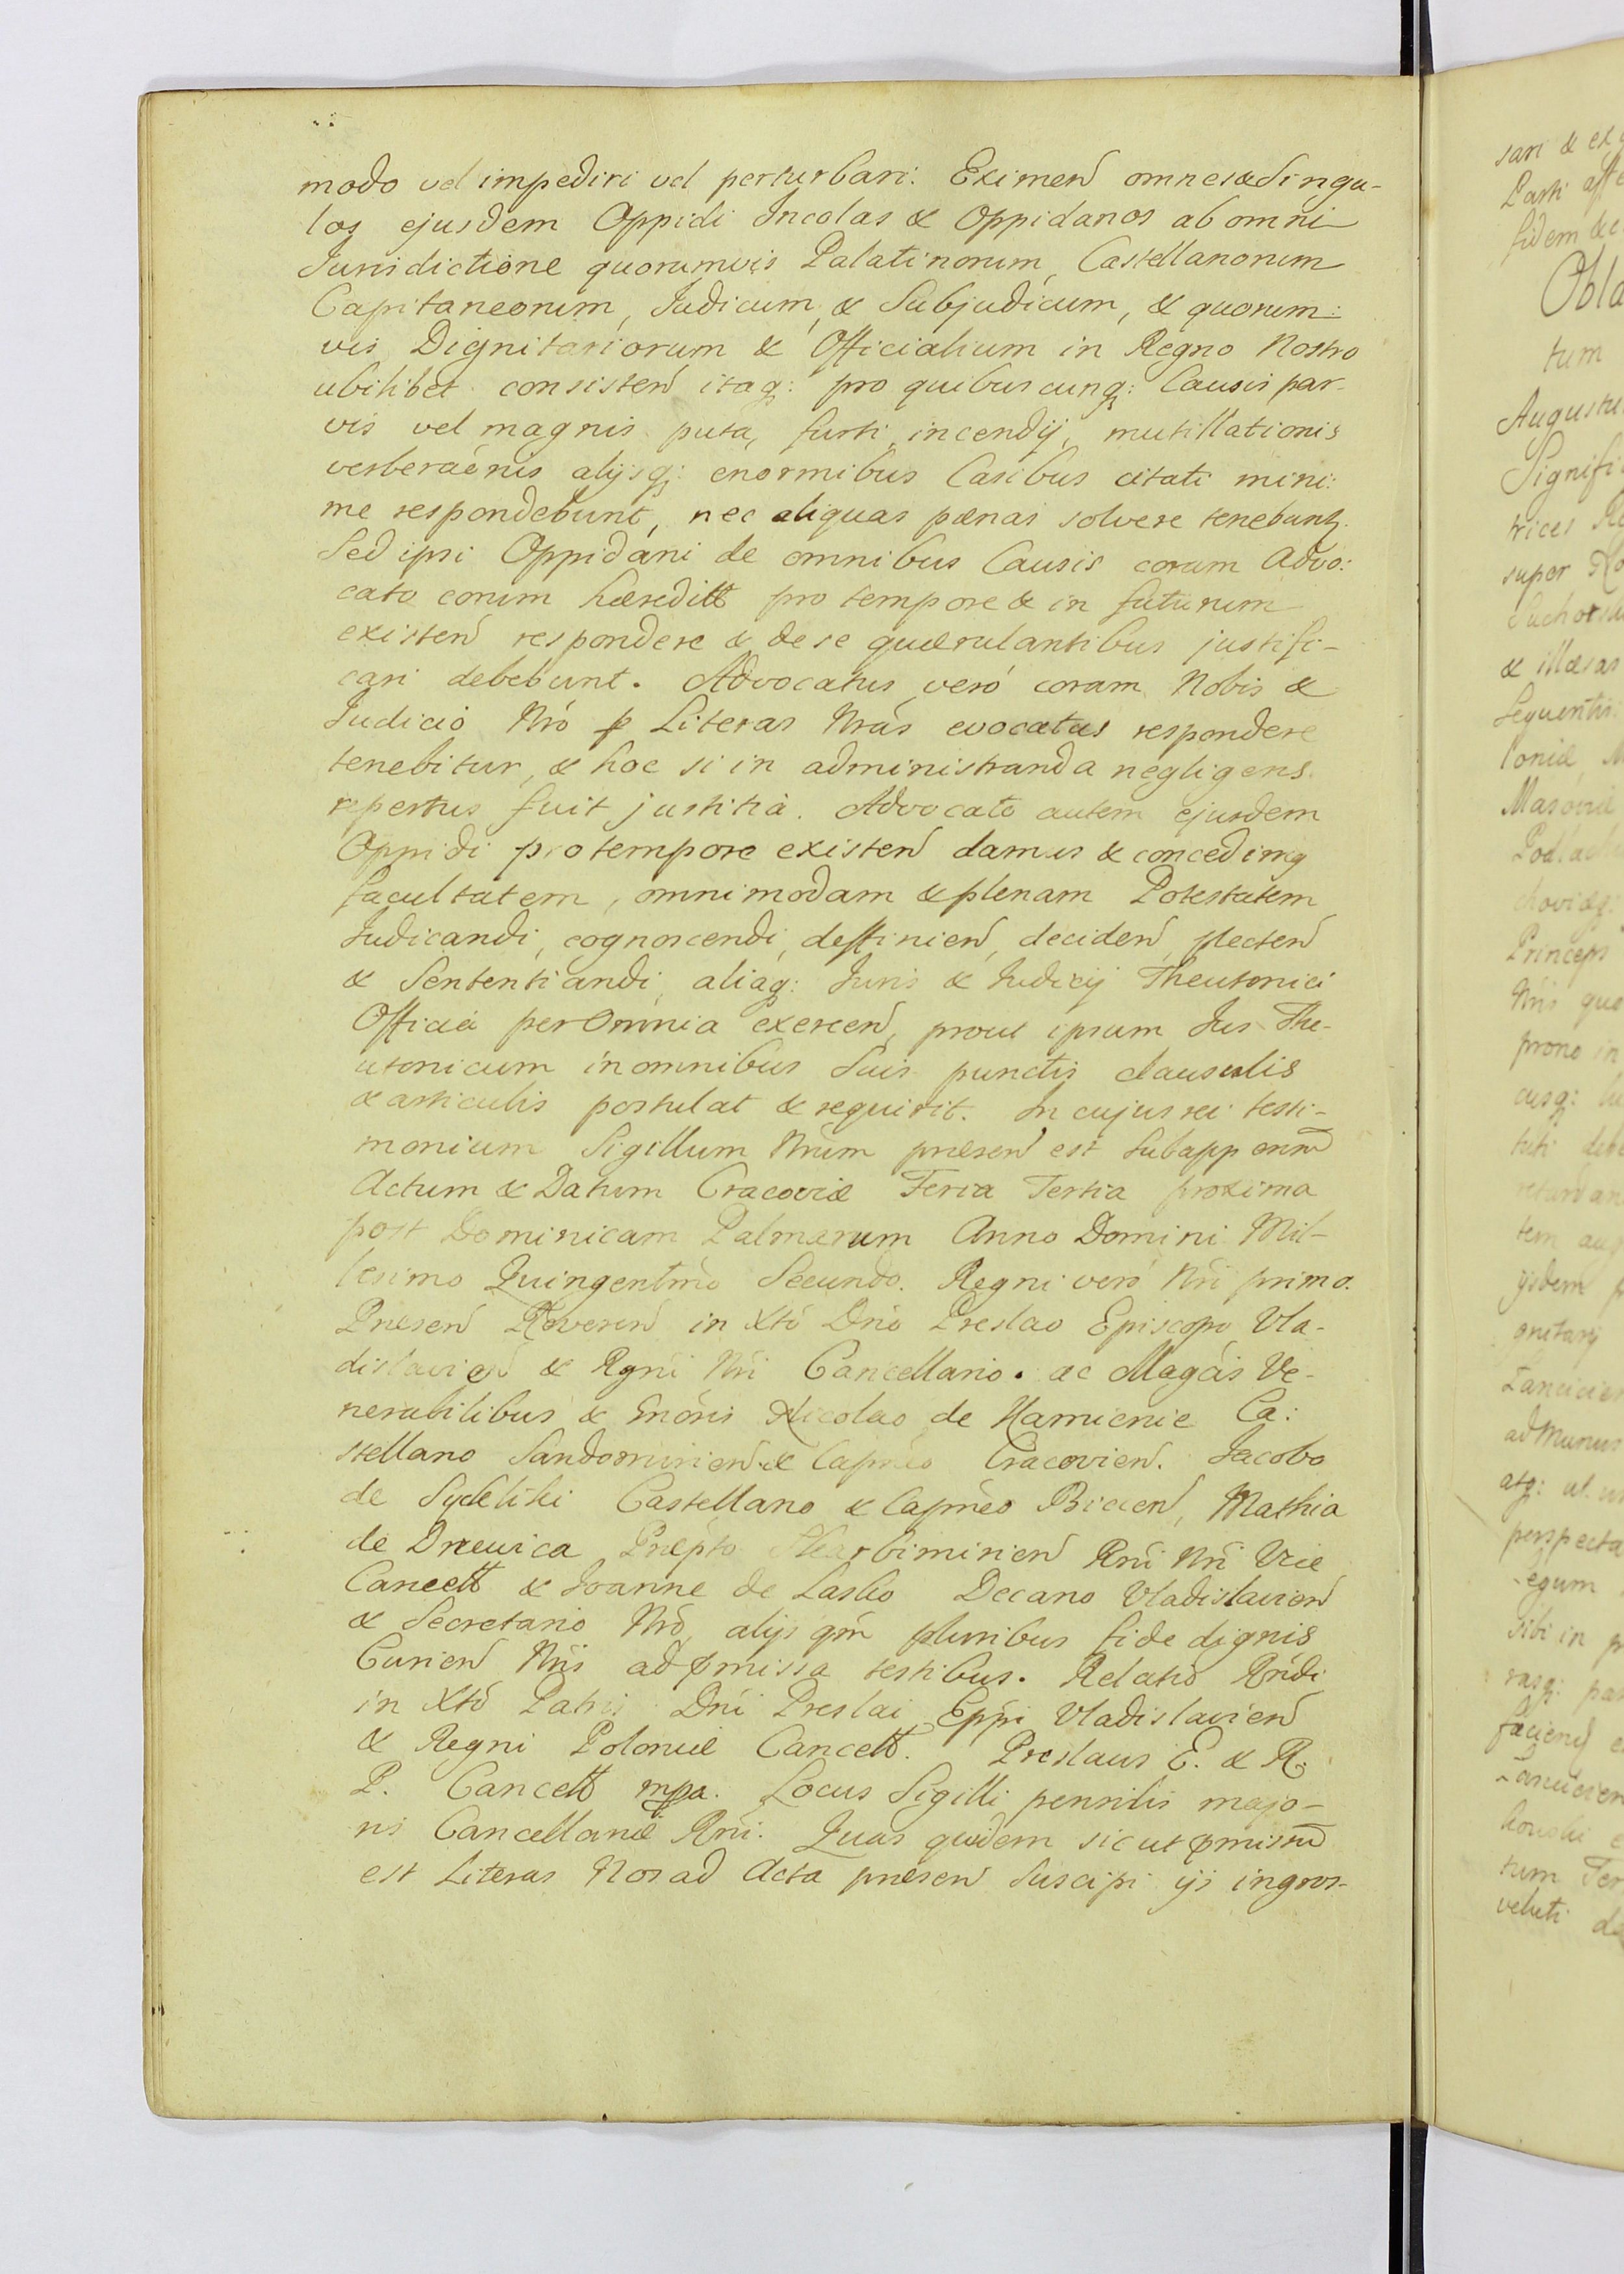 modo vel impediri vel perturbari. Eximen omnes & Singu-
los ejusdem Oppidi Incolas & Oppidanos ab omni
Jurisdictione quorumvis Palatinorum, Castellanorum
Capitaneorum, Judicum, & Subjudicum, & quorum:
vis Dignitariorum & Officialium in Regno Nostro
ubilibet consisten itaq: pro quibuscunq: Causis par-
vis vel magnis puta, furti, incendij, mutillationis
verberaẽnis alijsq: enormibus Casibus citati mini:
me respondebunt, nec aliquas pænas solvere tenebunt.
Sed ipsi Oppidani de omnibus Causis coram Advo:
cato eorum hæreditt pro tempore & in futurum
existen respondere & de se quærulantibus justifi-
cari debebunt. Advocatus veró coram Nobis &
Judició Nró p Literas Nrás evocatus respondere
tenebitur, & hoc si in administranda negligens
repertus fuit justitia. Advocato autem ejusdem
Oppidi pro tempore existen damus & concedimq
facultatem, omnimodam & plenam Potestatem
Judicandi, cognoscendi, deffinien, deciden, plecten
& Sententiandi, aliaq: Juris & Judicij Theutonici
Officia per Omnia exercen, prout ipsum Jus The-
utonicum in omnibus Suis punctis clausulis
& articulis postulat & requirit. In cujus rei testi-
monium Sigillum Nrum præsen est Subappensũ
Actum & Datum Cracoviæ Feria Tertia proxima
post Dominicam Palmarum Anno Domini Mil-
lesimo Quingentmo Secundo. Regni veró Nri primo.
Præsen Reveren in Xtó Dnó Preslao Episcopo Vla-
dislavien & Rgni Nri Cancellario. ac Magcis Ve-
nerabilibus & Gnõris Nicolao de Kamienie Ca:
stellano Sandomirien & Capneo Cracovien. Jacobo
de Syekliki Castellano & Capneo Biecien, Mathia
de Drewica Præpto Skarbimirien Rni Nri Vice
Cancett & Joanne de Lasko Decano Vladislavien
& Secretario Nró, alijs qm pluribus fide dignis
Curien Nris ad pmissa testibus. Relatio Rndi
in Xtó Patris Dni Preslai Eppi Vladislavien
& Regni Poloniæ Cancett. Preslaus E. & R.
P. Cancett mpa. Locus Sigilli pensilis majo-
ris Cancellariæ Rni. Quas quidem sic ut pmissũ
est Literas Nos ad Acta præsen Suscipi ijs ingros-